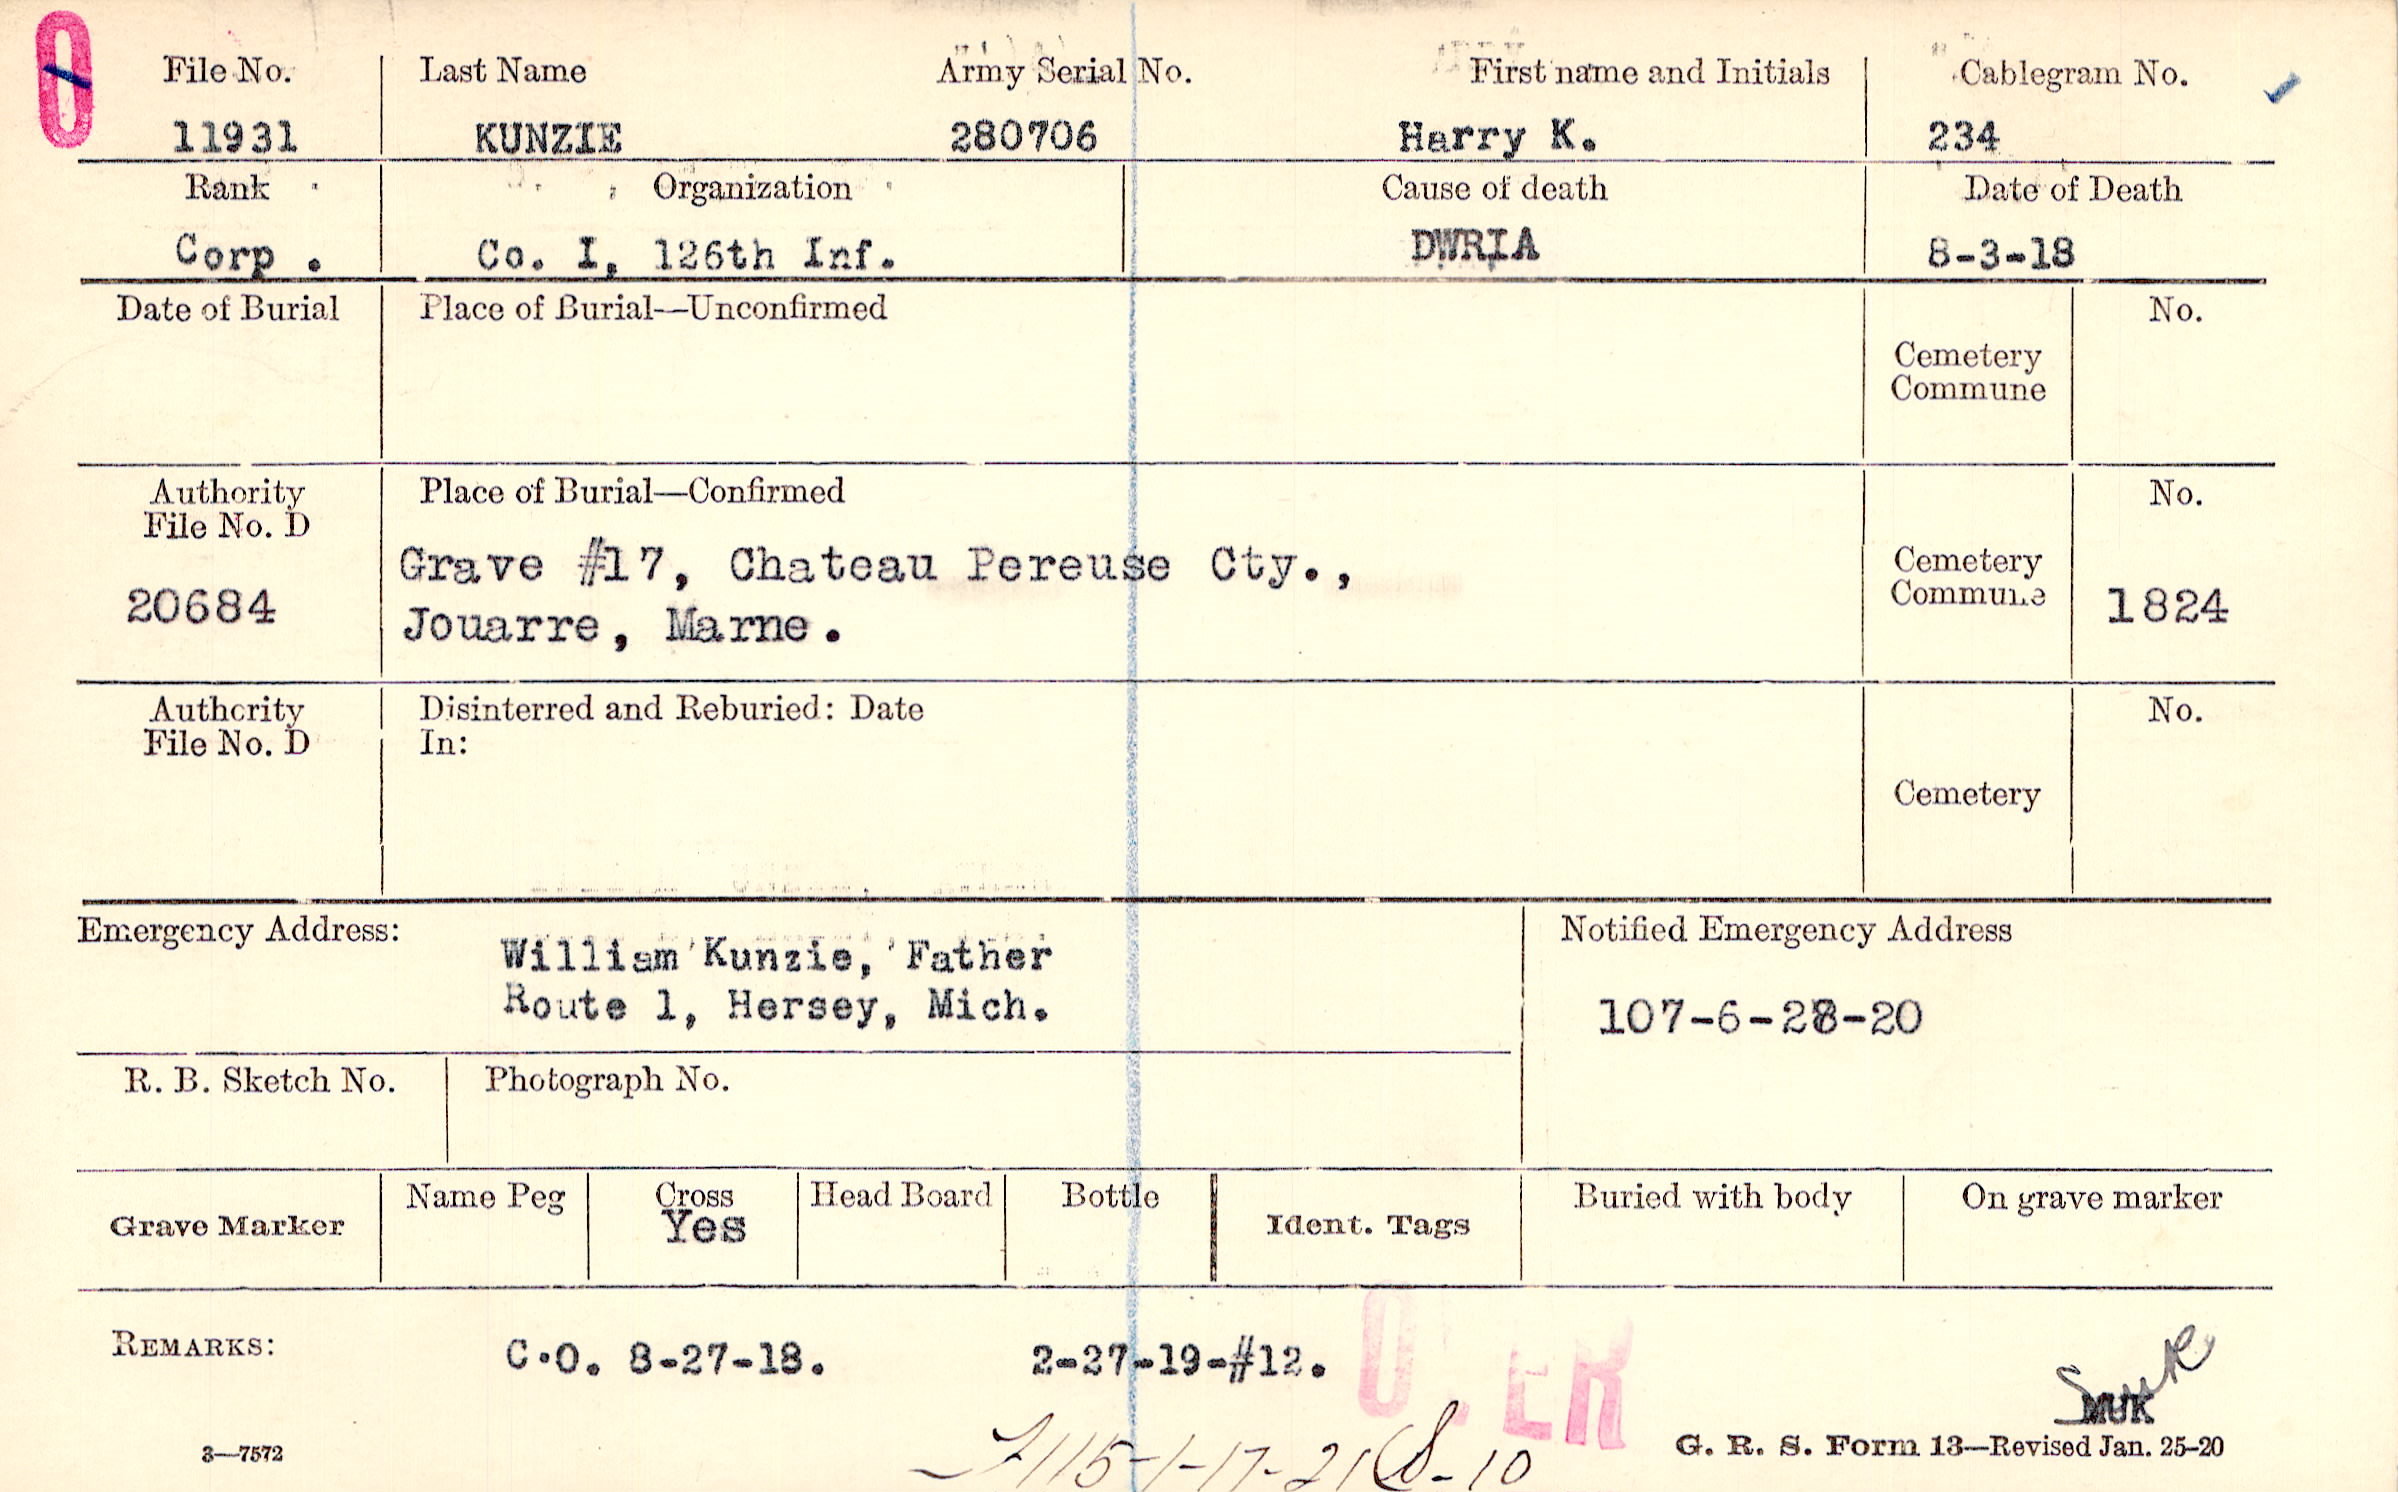 O
File No. Last Name Army Serial No. First name and Initials Cablegram No.
11931 KUNZIE 280706 Harry K. 234
Rank Organization Cause of death Date of Death
Corp. Co. I, 126th Inf. DWRIA 8-3-18
Date of Burial Place of Burial—Unconfirmed No.
Cemetery
Commune
Authority Place of Burial—Confirmed No.
File No. D
Grave #17, Chateau Pereuse Cty., Cemetery
20684 Jouarre, Marne. Commune 1824
Authority Disinterred and Reburied: Date No.
File No. D In:
Cemetery
Emergency Address: Notified Emergency Address
William Kunzie, Father
Route 1, Hersey, Mich. 107-6-28-20
R. B. Sketch No. Photograph No.
Grave Marker Name Peg Cross Head Board Bottle Ident. Tags Buried with body On grave marker
Yes
REMARKS: C.O. 8-27-18. 2-27-19-#12.
OVER
MUK
3—7572 G. R. S. Form 13—Revised Jan. 25-20